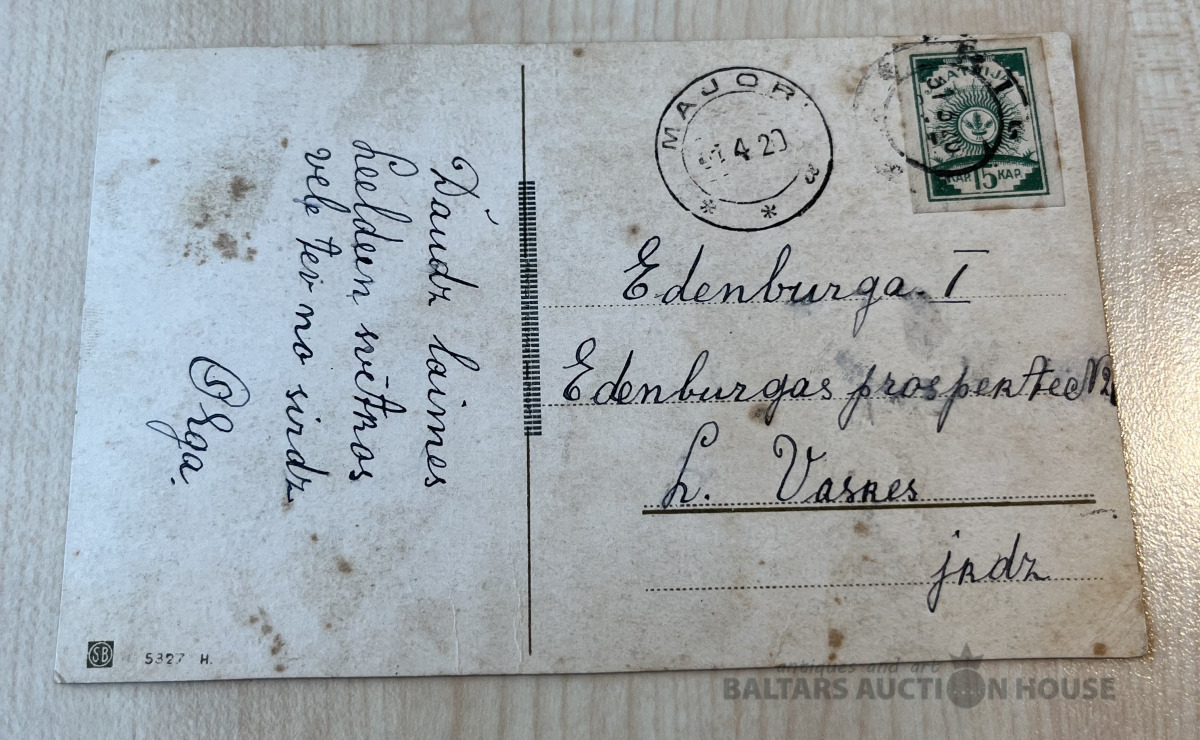 Daudz laimes
Leeldeen svētkos
vele tev no sirdz
Olga.
SB 5327 H.
MAJOR
4 20
LATVIJA
KAP. 15 KAP.
Edenburga. I
Edenburgas prospektee N2
L. Vaskes
jkdz
antiques and art
BALTARS AUCTION HOUSE